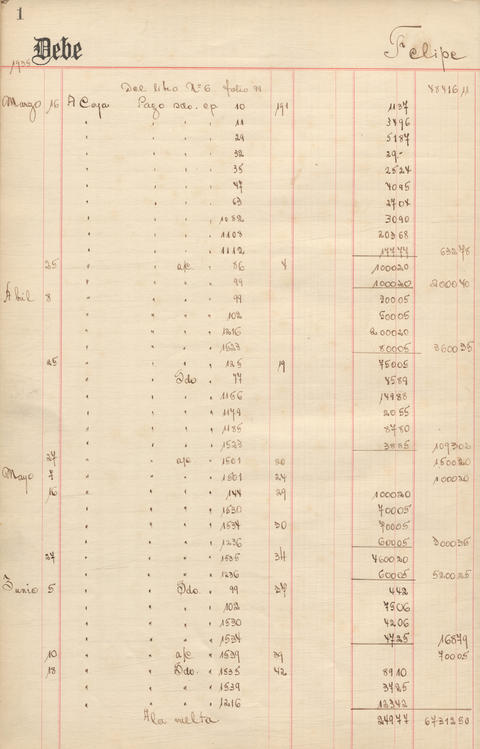 1
Debe Felipe
1935
Del libro Nº 6 folio 99 4841611
Marzo 16 A Caja Pago sdo. ep 10 191 1137
" " " " 11 3496
" " " " 29 5187
" " " " 32 29-
" " " " 35 2524
" " " " 47 4095
" " " " 63 2704
" " " " 1082 3090
" " " " 1103 20368
" " " " 1112 14777 63278
25 " " a/c " 86 4 100020
" " " " 99 100020 200040
Abril 8 " " " " 99 30005
" " " " 102 50005
" " " " 1216 200020
" " " " 1523 80005 360035
25 " " " " 125 19 75005
" " Sdo. " 77 4589
" " " " 1156 14988
" " " " 1179 2055
" " " " 1185 8780
" " " " 1523 3885 109302
27 " " a/c " 1501 20 150020
Mayo 7 " " " " 1501 24 100020
16 " " " " 144 29 100020
" " " " 1530 70005
" " " " 1534 30 70005
" " " " 1236 60005 300035
27 " " " " 1535 34 460020
" " " " 1236 60005 520025
Junio 5 " " Sdo. " 99 37 442
" " " " 102 7506
" " " " 1530 4206
" " " " 1534 4725 16879
10 " " a/c " 1539 39 70005
18 " " Sdo. " 1535 42 8910
" " " " 1539 3725
" " " " 1216 12342
A la vuelta 24977 6731250